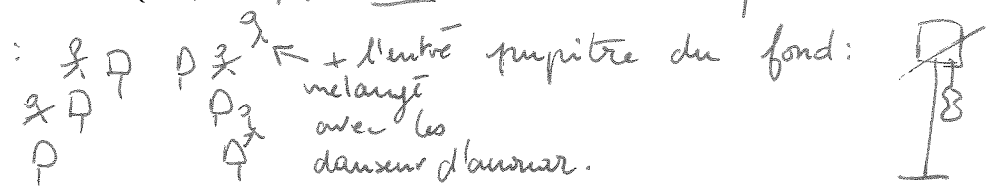 : + l'entré pupitre du fond :
mélangé
avec les
danseur d'